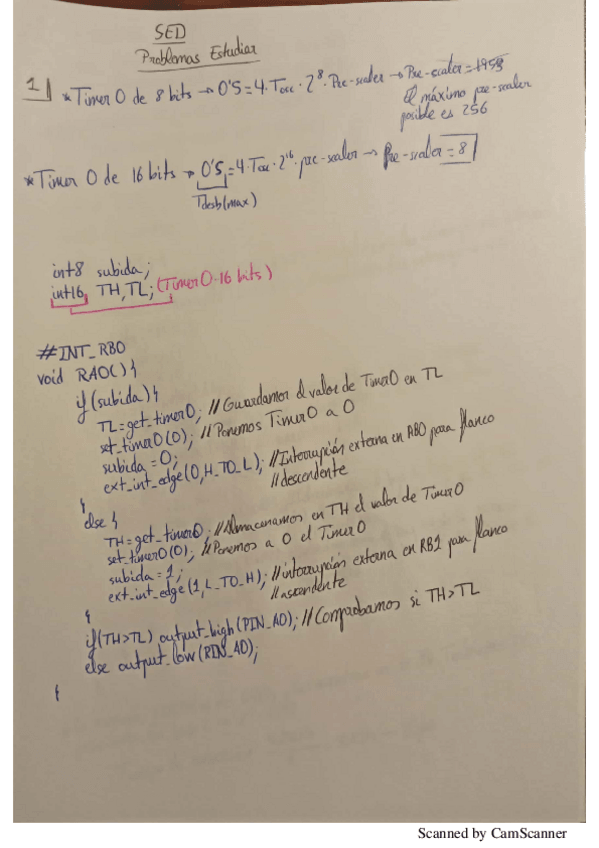 SED
Problemas Estudiar
1 * Timer 0 de 8 bits → 0'5 = 4·Tosc·2^8·Pre-scaler → Pre-scaler = 1953
El máximo pre-scaler
posible es 256
* Timer 0 de 16 bits → 0'5 = 4·Tosc·2^16·pre-scaler → Pre-scaler = 8
Tdesb(max)
int8 subida;
int16 TH,TL; (Timer0-16 bits)
#INT_RB0
void RAO(){
if(subida){
TL=get_timer0; //Guardamos el valor de Timer0 en TL
set_timer0(0); //Ponemos Timer0 a 0
subida=0;
ext_int_edge(0,H_TO_L); //Interrupción externa en RB0 para flanco
//descendente
}
else{
TH=get_timer0; //Almacenamos en TH el valor de Timer0
set_timer0(0); //Ponemos a 0 el Timer0
subida=1;
ext_int_edge(1,L_TO_H); //interrupción externa en RB1 para flanco
//ascendente
}
if(TH>TL) output_high(PIN_A0); //Comprobamos si TH>TL
else output_low(PIN_A0);
}
Scanned by CamScanner